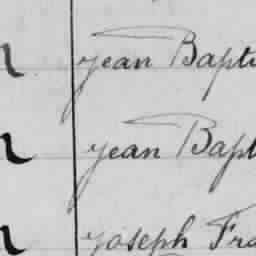 Jean Bapti
Jean Bapt
Joseph Fra